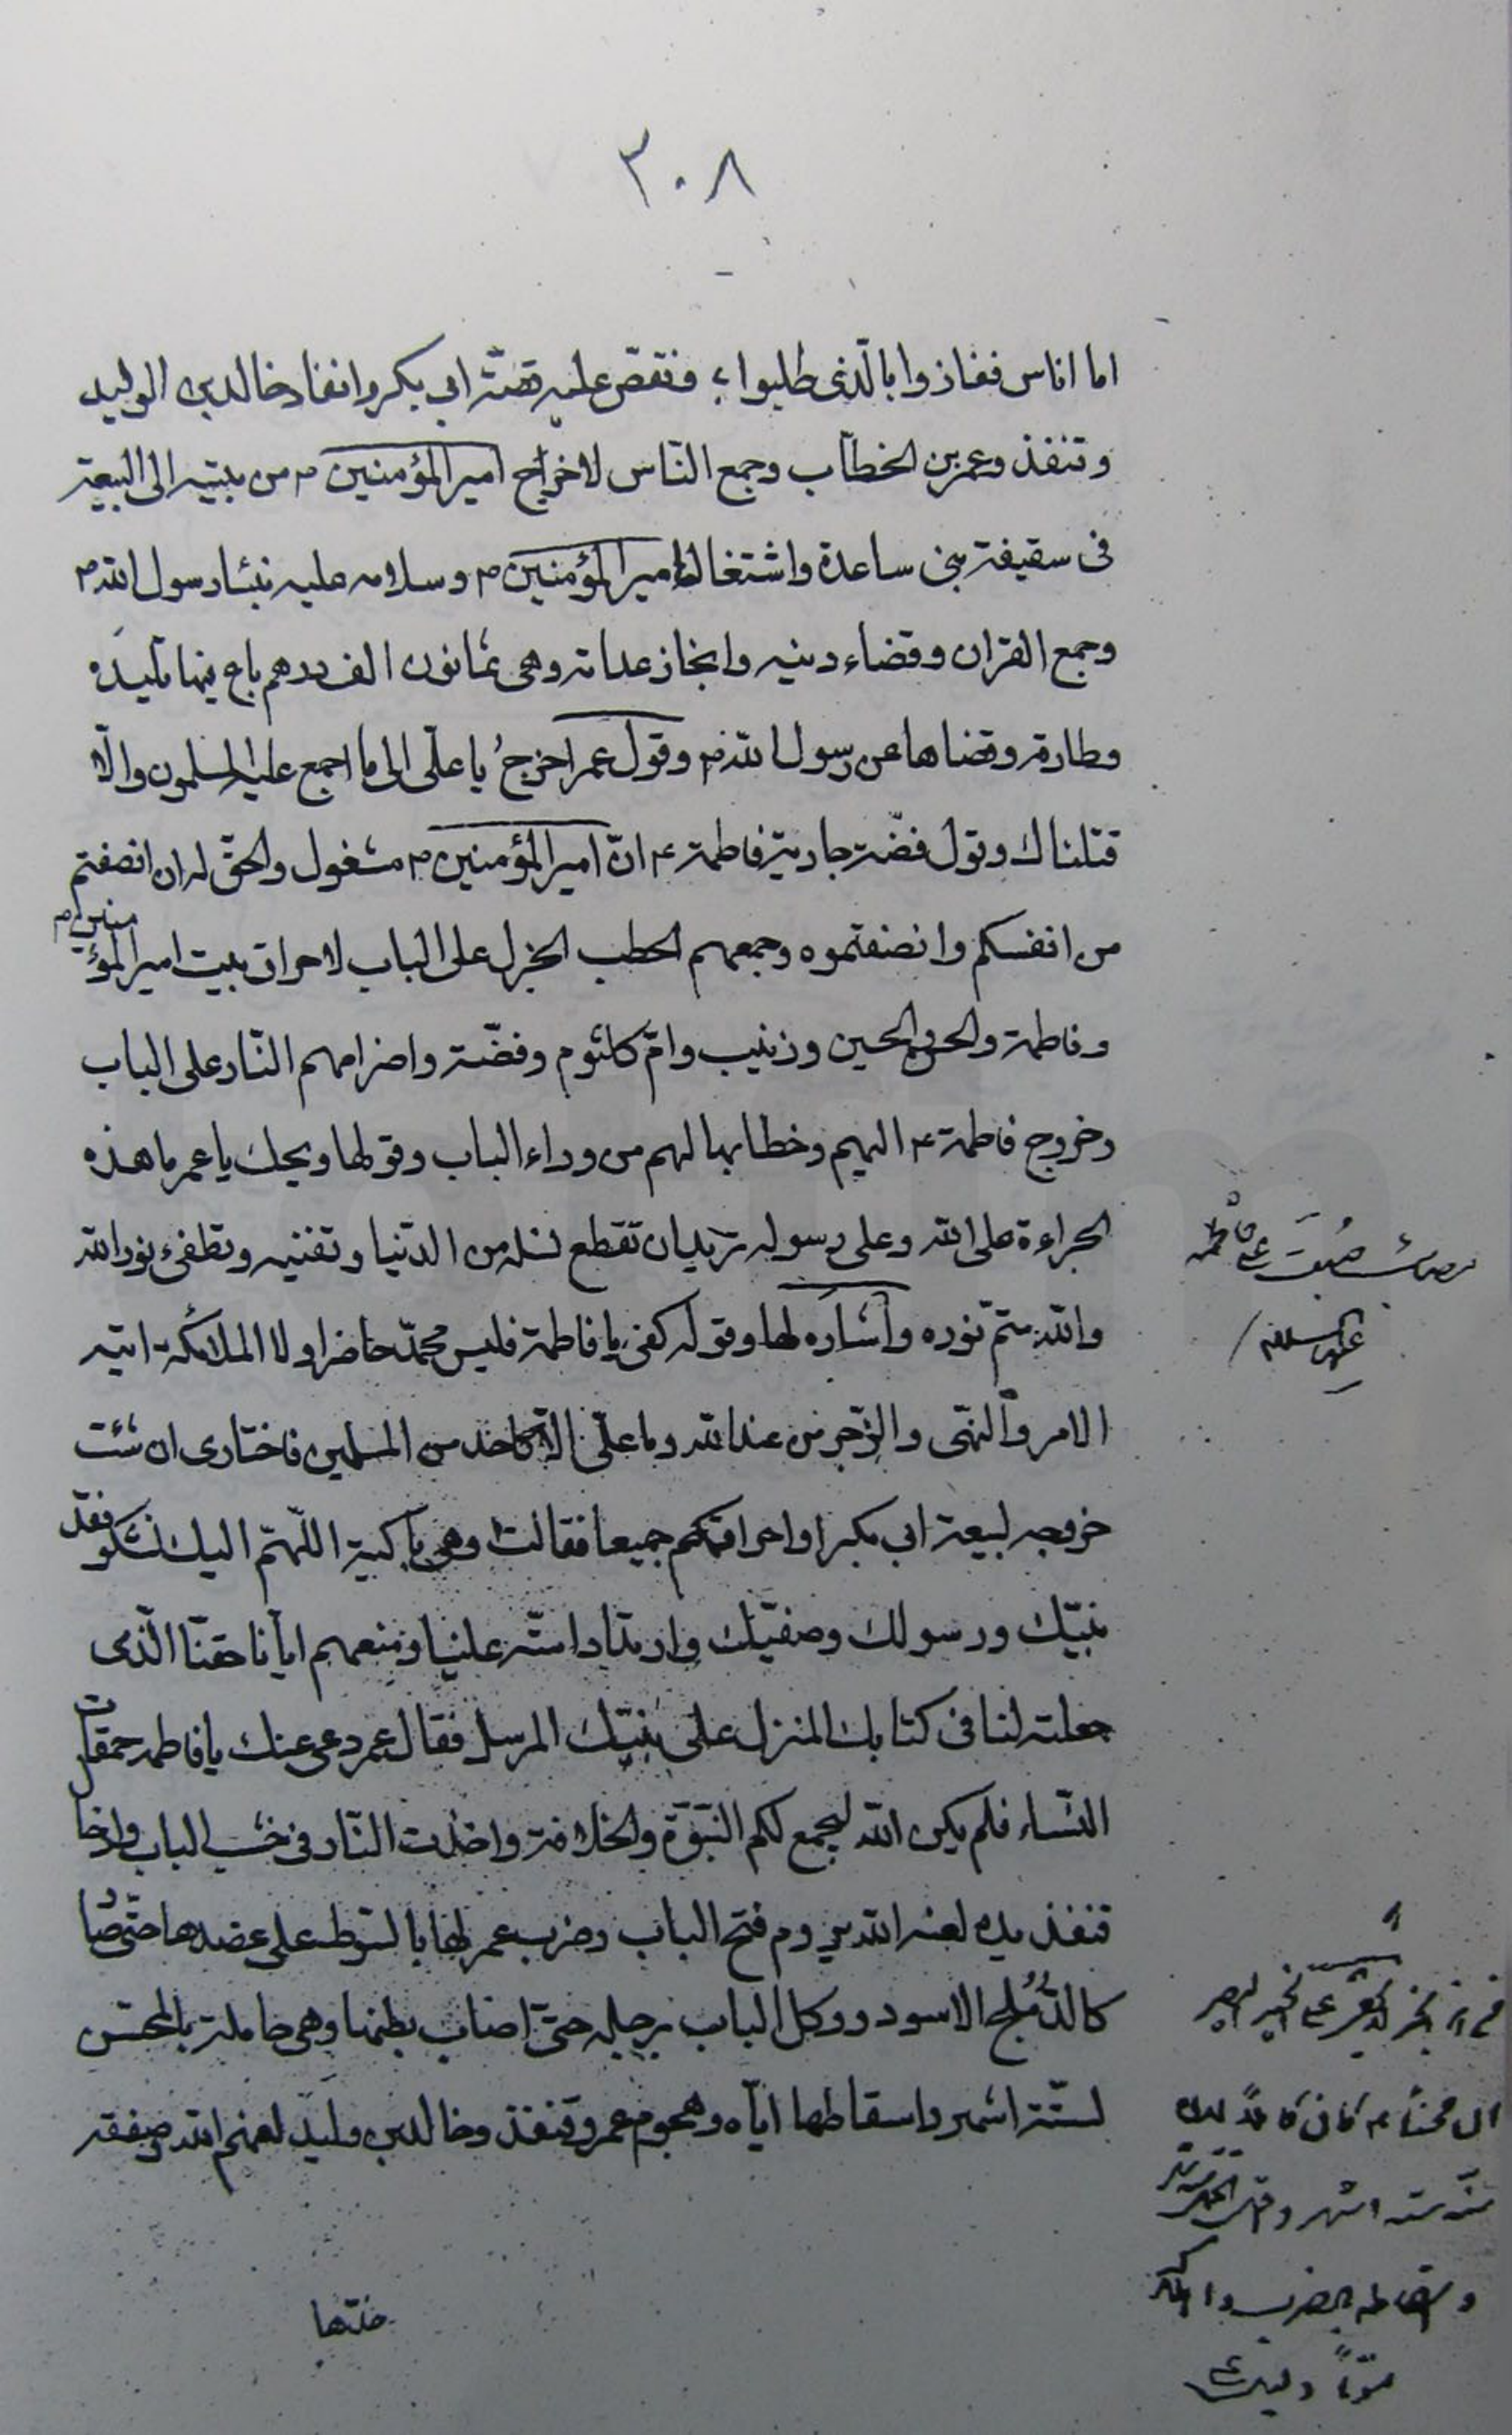 ٣٠٨
اما اناس ففازوا بالّذى طلبوا ؛ فنقصّ عليه قصّة ابى بكر وانفاد خالد بن الوليد
وقنفذ وعمر بن الخطاب وجمع النّاس لاخراج امير المؤمنين م من بيته الى البيعة
فى سقيفة بنى ساعدة واشتغال امير المؤمنين م وسلامه عليه بنساء رسول الله م
وجمع القران وقضاء دينه وانجاز عداته وهى ثمانون الف درهم باع فيها تليده
وطارفه وقضاها عن رسول الله م وقول عمر اخرج يا علّى الى ما اجمع عليه المسلمون والّا
قتلناك وقول فضّة جارية فاطمة ع انّ امير المؤمنين م مشغول والحقّ له ان انصفتم
من انفسكم وانصفتموه وجمعهم الحطب الجزل على الباب لاحراق بيت امير المؤمنين م
وفاطمة والحسن والحسين وزينب وامّ كلثوم وفضّة واضرامهم النّار على الباب
وخروج فاطمة ع اليهم وخطابها لهم من وراء الباب وقولها ويحك يا عمر ما هذه
الجراءة على الله وعلى رسوله تريد ان تقطع نسله من الدّنيا وتفنيه وتطفىء نور الله
والله متمّ نوره وانتهاره لها وقوله كفى يا فاطمة فليس محمّد حاضرا ولا الملائكة اتيه
الامر والنّهى والزّجر من عند الله وما علّى الّا كاحد من المسلمين فاختارى ان شئت
خروجه لبيعة ابى بكر او احراقكم جميعا فقالت وهى باكية اللّهمّ اليك نشكو فقد
نبيّك ورسولك وصفيّك وارتداد امّته علينا ومنعهم ايّانا حقّنا الّذى
جعلته لنا فى كتابك المنزل على نبيّك المرسل فقال عمر دعى عنك يا فاطمه حمقات
النّساء فلم يكن الله ليجمع لكم النّبوّة والخلافة واخذت النّار فى خشب الباب وادخال
قنفذ يده لعنه الله يروم فتح الباب وضرب عمر لها بالسّوط على عضدها حتّى صار
كالدّملج الاسود وركل الباب برجله حتّى اصاب بطنها وهى حاملة بالمحسن
لستّة اشهر واسقاطها ايّاه وهجوم عمر وقنفذ وخالد بن وليد لعنهم الله وصفقه
خدّها
عليها السلام
ستة اشهر